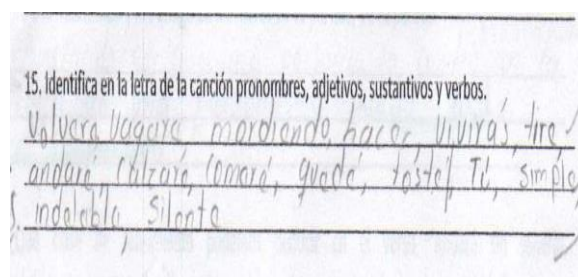 15. Identifica en la letra de la canción pronombres, adjetivos, sustantivos y verbos.
Volvera, Vagare, mordiendo, hacer, vivirás, tire
andaré, Calzare, tomaré, quede, Tú, simple,
indeleble Silente